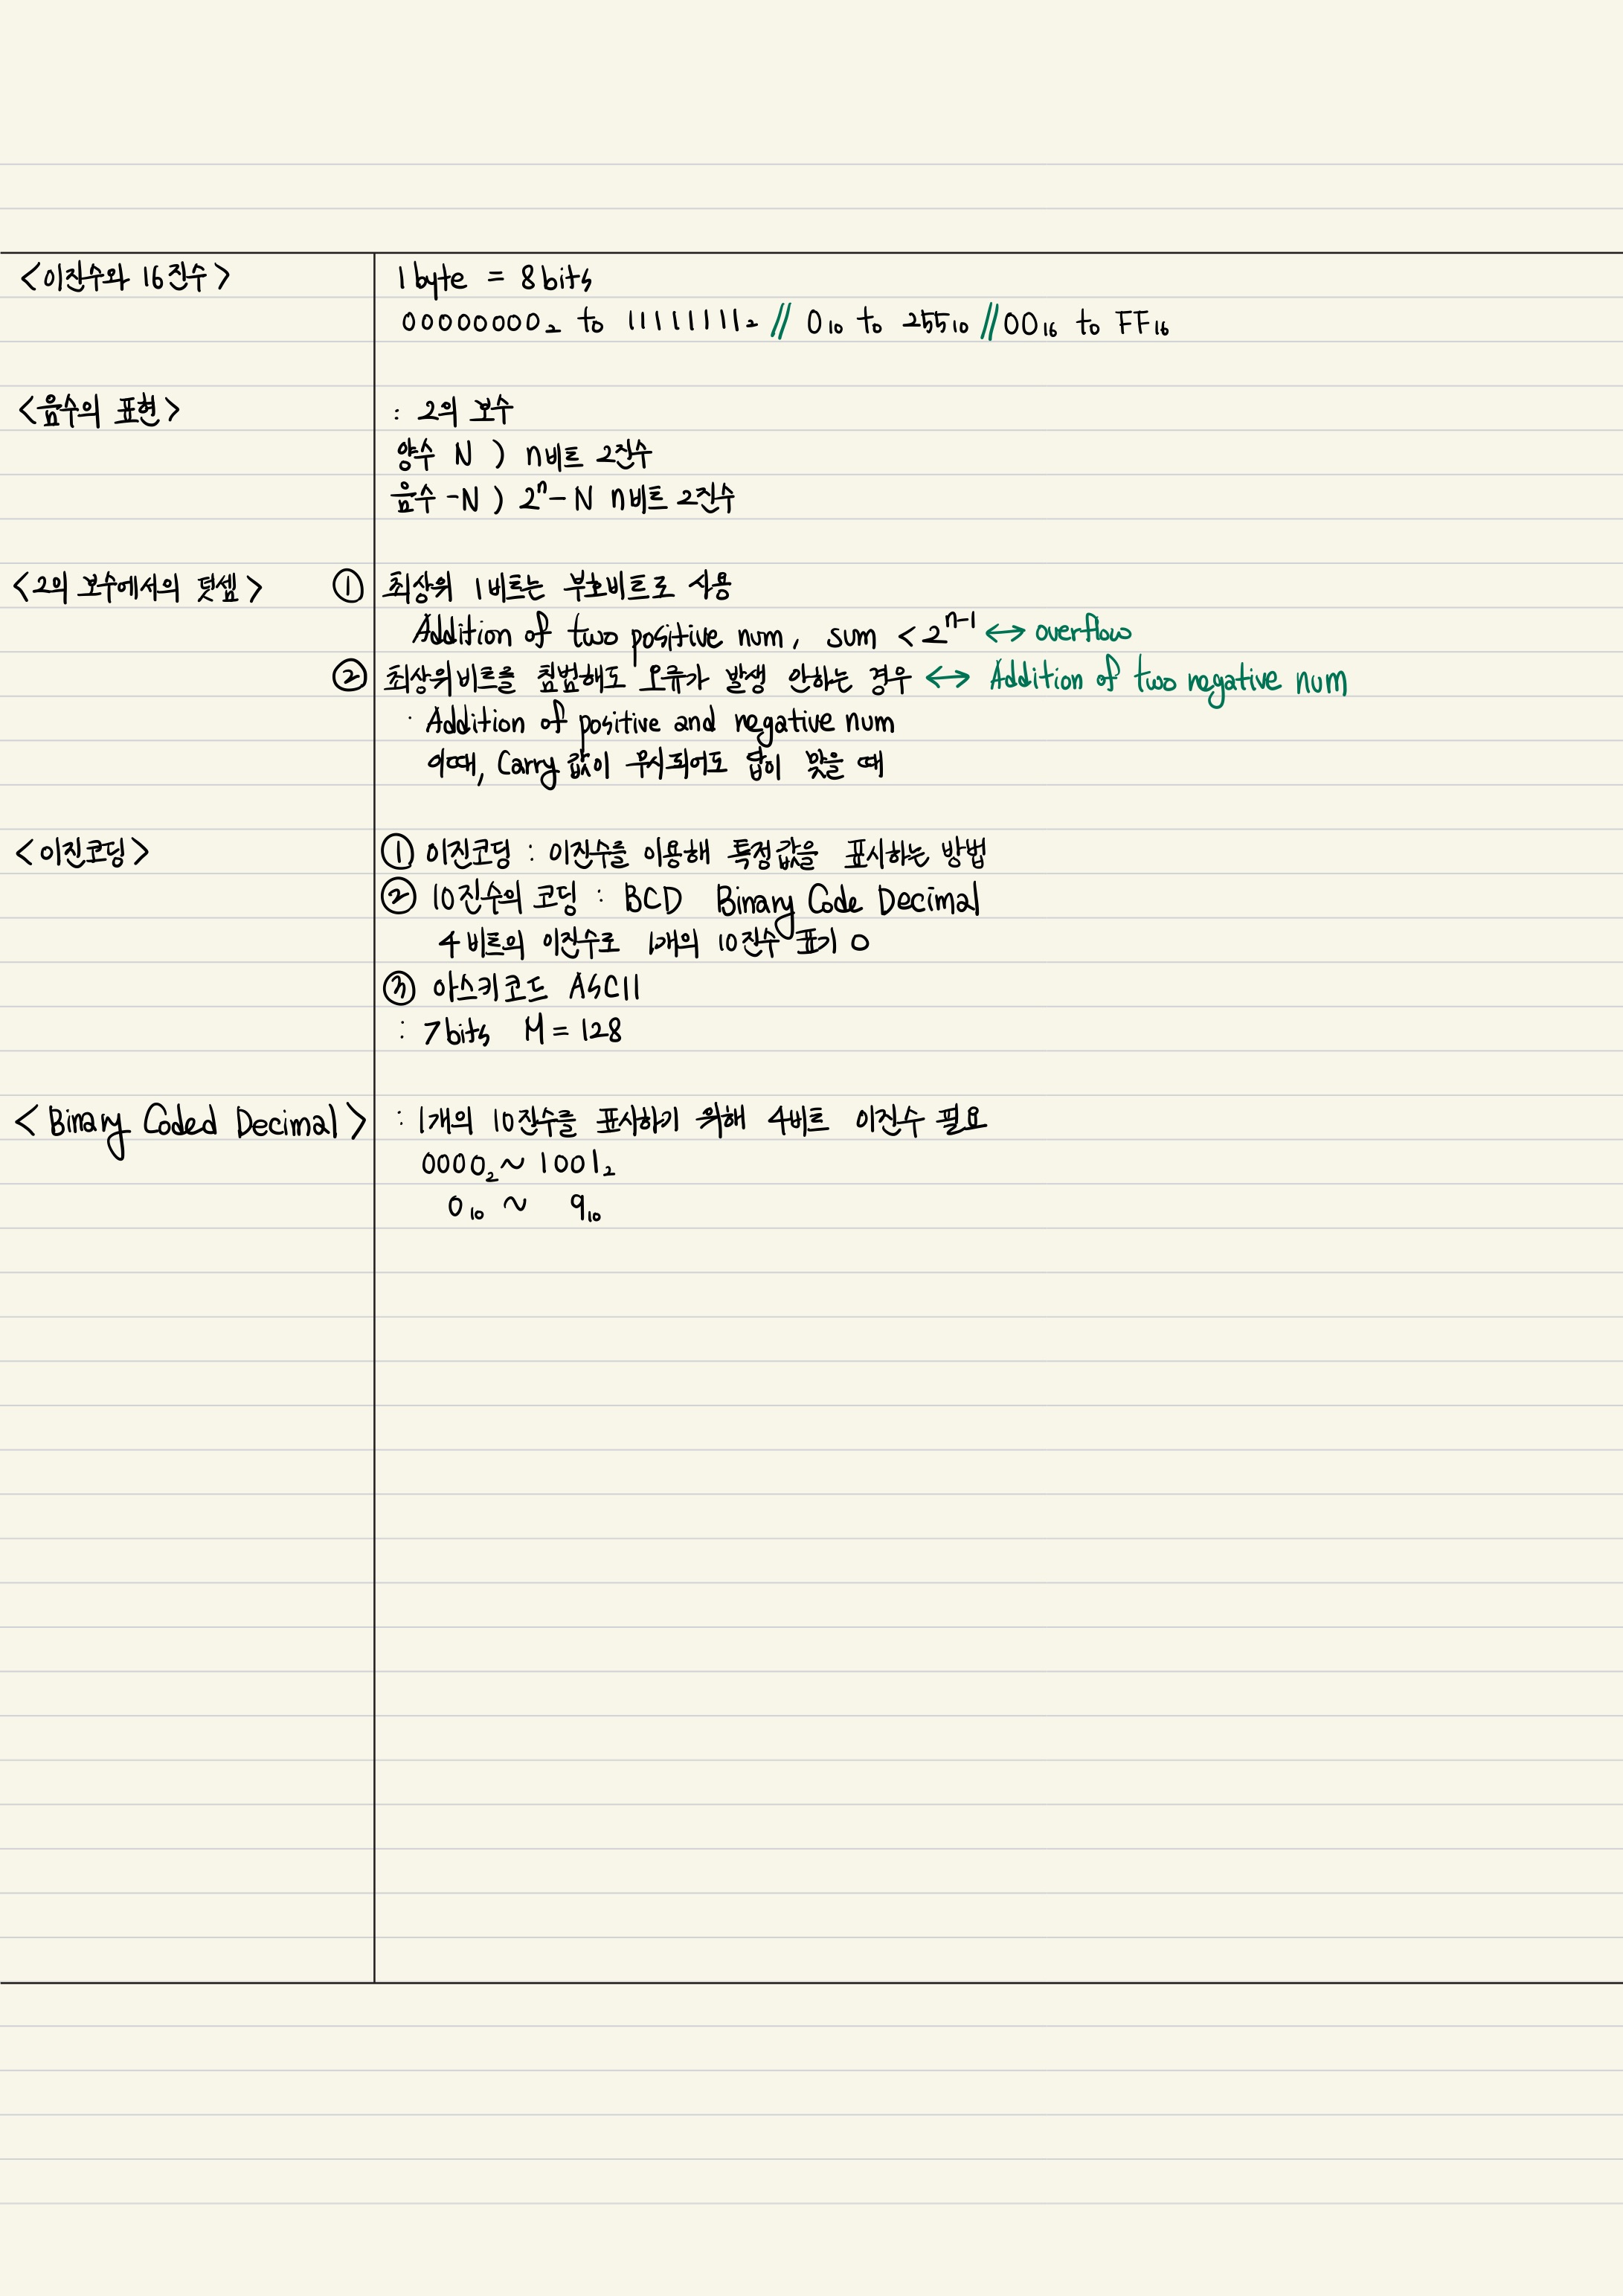 <이진수와 16진수>
1byte = 8bits
00000000₂ to 11111111₂ // 0₁₀ to 255₁₀ // 00₁₆ to FF₁₆
<음수의 표현>
: 2의 보수
양수 N ) n비트 2진수
음수 -N ) 2ⁿ-N n비트 2진수
<2의 보수에서의 덧셈>
① 최상위 1비트는 부호비트로 사용
Addition of two positive num, sum < 2ⁿ⁻¹ ↔ overflow
② 최상위비트를 침범해도 오류가 발생 안하는 경우 ↔ Addition of two negative num
· Addition of positive and negative num
이때, Carry 값이 무시되어도 답이 맞을 때
<이진코딩>
① 이진코딩 : 이진수를 이용해 특정값을 표시하는 방법
② 10진수의 코딩 : BCD Binary Code Decimal
4비트의 이진수로 1개의 10진수 표기 O
③ 아스키코드 ASCII
: 7bits M = 128
<Binary Coded Decimal>
: 1개의 10진수를 표시하기 위해 4비트 이진수 필요
0000₂ ~ 1001₂
0₁₀ ~ 9₁₀